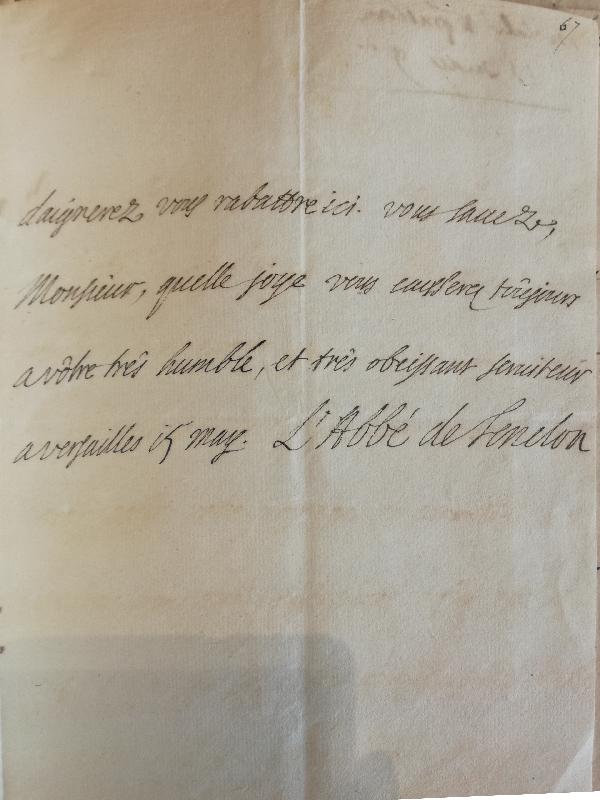 67
daignerez vous rabattre ici. vous sauez,
Monsieur, quelle joye vous causserez toûjours
a vôtre três humble, et três obeissant seruiteur
a versailles 15 may. L'Abbé de Fenelon